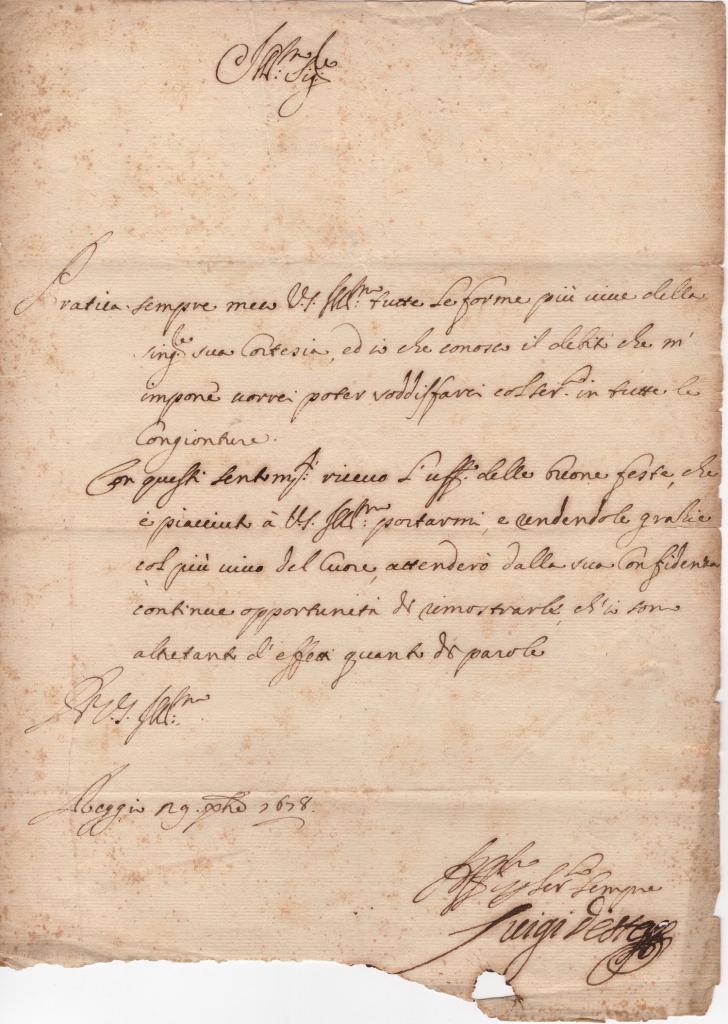 Ill.mo Sig.re
Pratica sempre meco V.S. Ill.ma tutte le forme più vive della
sing.re sua Cortesia, ed io che conosco il debito che m'
impone vorrei poter soddisfarci col ser.o in tutte le
Congionture.
Con questi sentim.ti ricevo l'uff.o delle buone feste, che
è piaciuto à V.S. Ill.ma portarmi, e rendendole grazie
col più vivo del Cuore, attenderò dalla sua Confidenza
continue opportunità di rimostrarle, ch'io sono
altretanto d'effetti quanto di parole
Di V.S. Ill.ma
Reggio 29 1678.
Aff.mo Ser.re sempre
Luigi d'Este